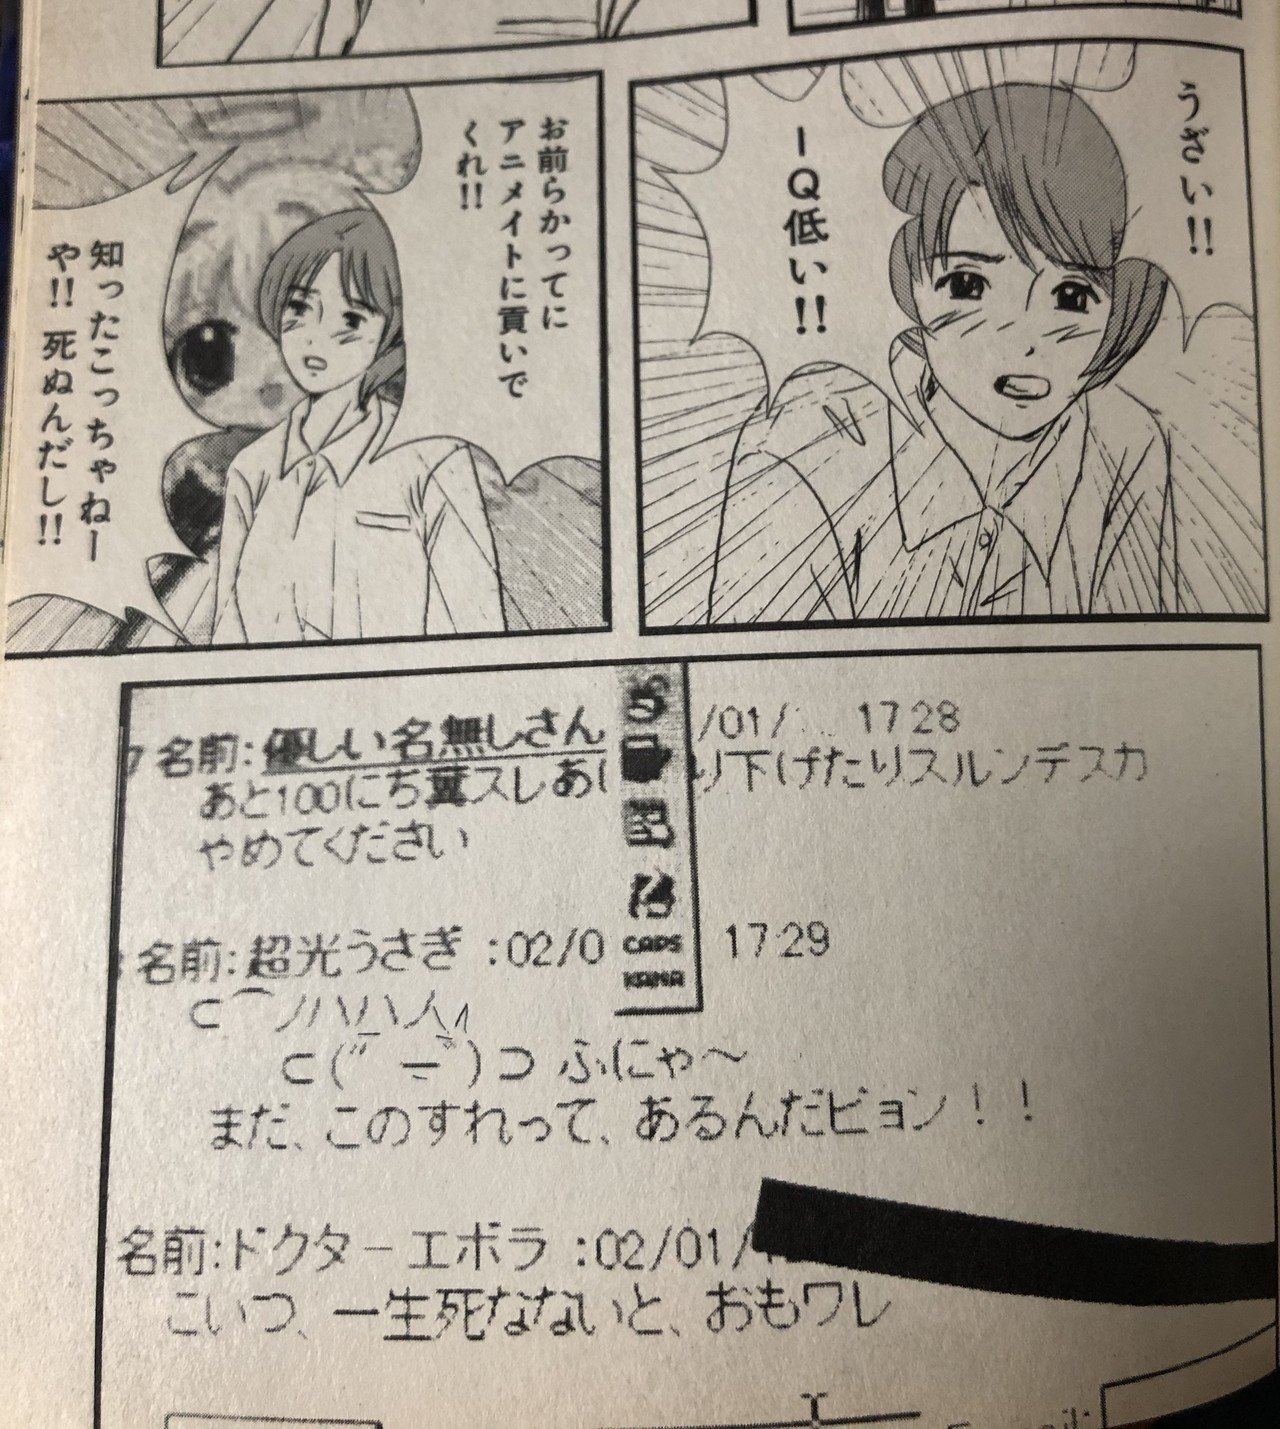 うざい!!
IQ低い!!
お前らかってに
アニメイトに貢いで
くれ!!
知ったこっちゃねー
や!! 死ぬんだし!!
名前:優しい名無しさん /01/ 17:28
あと100にち糞スレあ り下げたりスルンデスカ
やめてください
CAPS
KANA
名前:超光うさぎ :02/0 17:29
⊂⌒ノハハ人
⊂(" ー")⊃ ふにゃ～
まだ、このすれって、あるんだビョン！！
名前:ドクターエボラ :02/01/
こいつ、一生死なないと、おもワレ